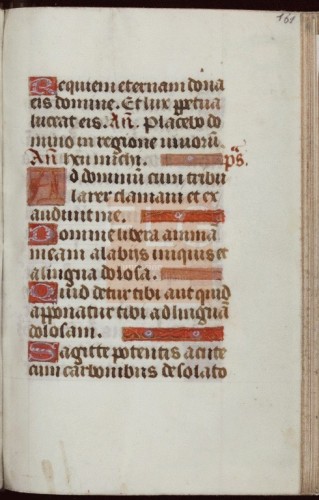 161
Requiem eternam dona
eis domine. Et lux ꝑpetua
luceat eis. An̄. Placebo do
mino in regione uiuorū.
An̄ heu michi. ps̄.
Ad dominum cum tribu
larer clamaui et ex
audiuit me.
Domine libera animā
meam a labijs iniquis et
a lingua dolosa.
Quid detur tibi aut quid
apponatur tibi ad linguā
dolosam.
Sagitte potentis acute
cum carbonibus desolato